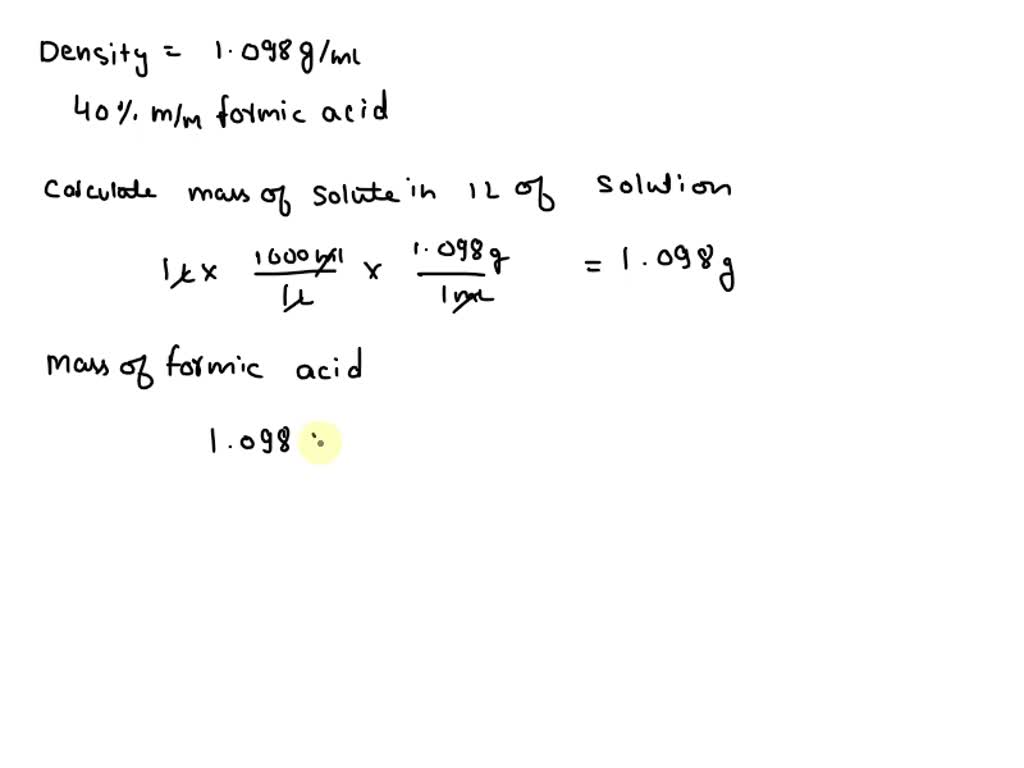 Density = 1.098 g/ml
40% m/m formic acid
Calculate mass of solute in 1L of solution
1L x 1000ml / 1L x 1.098g / 1mL = 1.098g
Mass of formic acid
1.098